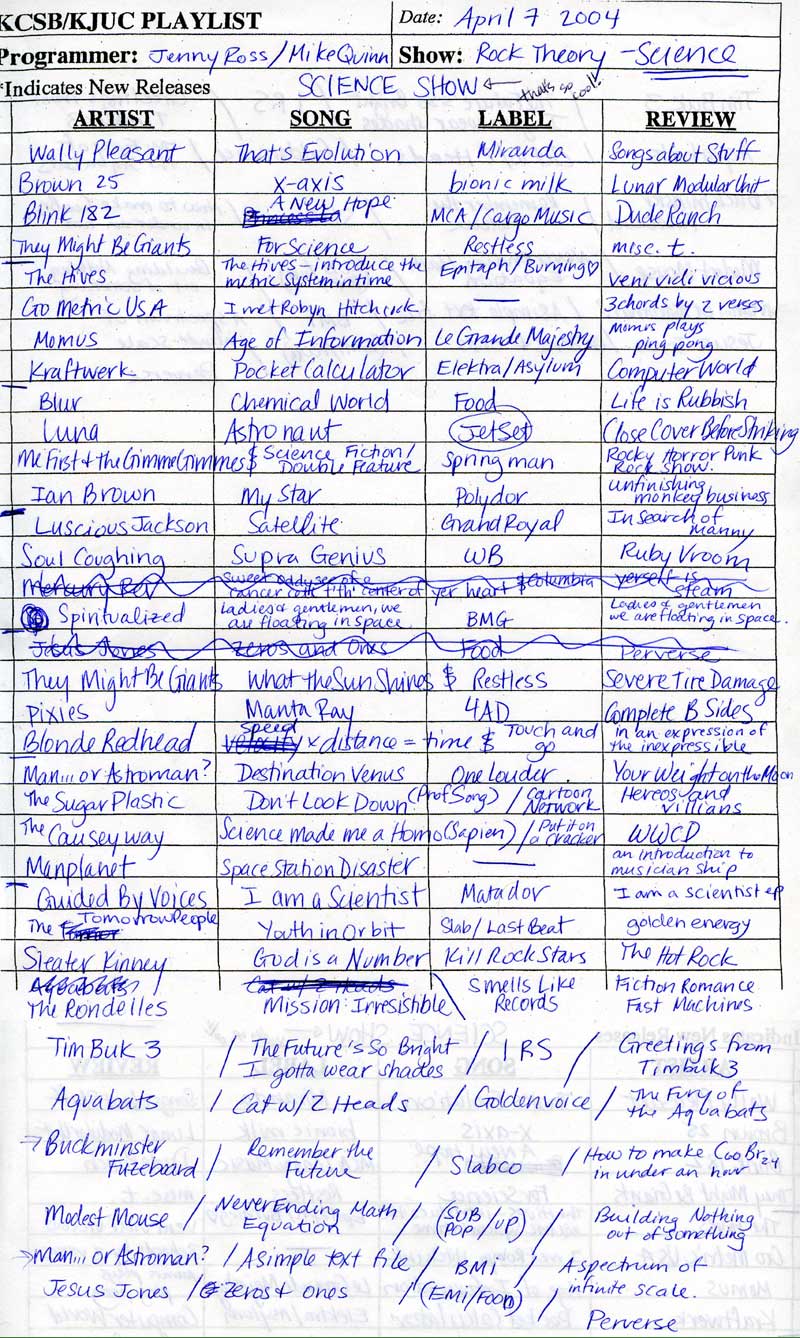 KCSB/KJUC PLAYLIST Date: April 7 2004
Programmer: Jenny Ross/MikeQuinn Show: Rock Theory -Science
*Indicates New Releases SCIENCE SHOW ← that's so cool!
ARTIST SONG LABEL REVIEW
Wally Pleasant That's Evolution Miranda Songs about Stuff
Brown 25 x-axis bionic milk Lunar Modular Unit
Blink 182 A New Hope MCA/Cargo Music Dude Ranch
They Might Be Giants For Science Restless misc. t.
The Hives The Hives - introduce the metric system in time Epitaph/Burning♡ veni vidi vicious
Go Metric USA I met Robyn Hitchcock — 3 chords by 2 verses
Momus Age of Information Le Grande Majestry Momus plays ping pong
Kraftwerk Pocket Calculator Elektra/Asylum Computer World
Blur Chemical World Food Life is Rubbish
Luna Astronaut JetSet Close Cover Before Striking
Me First & the Gimme Gimmes $ Science Fiction/Double Feature Springman Rocky Horror Punk Rock Show.
Ian Brown My Star Polydor unfinishing monkey business
Luscious Jackson Satellite Grand Royal In Search of Manny
Soul Coughing Supra Genius WB Ruby Vroom
Mercury Rev Sweet oddysee of a cancer cell t' th' center of yer heart $ Columbia yerself is steam
Spiritualized Ladies & gentlemen, we are floating in space BMG Ladies & gentlemen we are floating in space.
Jesus Jones Zeros and Ones Food Perverse
They Might Be Giants What the Sun Shines $ Restless Severe Tire Damage
Pixies Manta Ray 4AD Complete B Sides
Blonde Redhead velocity speed x distance = time $ Touch and go in an expression of the inexpressible
Man... or Astroman? Destination Venus One Louder Your Weight on the Moon
The Sugar Plastic Don't Look Down (Prof Song) / Cartoon Network Hereos and villians
The Causey way Science made me a Homo (Sapien) / Put it on a cracker WWCD
Manplanet Space Station Disaster — an introduction to musician ship
Guided By Voices I am a Scientist Matador I am a scientist ep
The Tomorrow People Youth in Orbit Slab/Last Beat golden energy
Sleater Kinney God is a Number Kill Rock Stars The Hot Rock
Aquabats Cat w/ 2 Heads
The Rondelles Mission: Irresistible \ Smells Like Records Fiction Romance Fast Machines
Tim Buk 3 / The Future's So Bright I gotta wear shades / IRS / Greetings from Timbuk 3
Aquabats / Cat w/ 2 Heads / Goldenvoice / The Fury of the Aquabats
→ Buckminster Fuzeboard / Remember the Future / Slabco / How to make C60Br24 in under an hour
Modest Mouse / Never Ending Math Equation / (SUB POP/UP) / Building Nothing out of something
→ Man... or Astroman? / A simple text file / BMI / A spectrum of infinite scale.
Jesus Jones / Zeros & ones / (EMI/Food) / Perverse